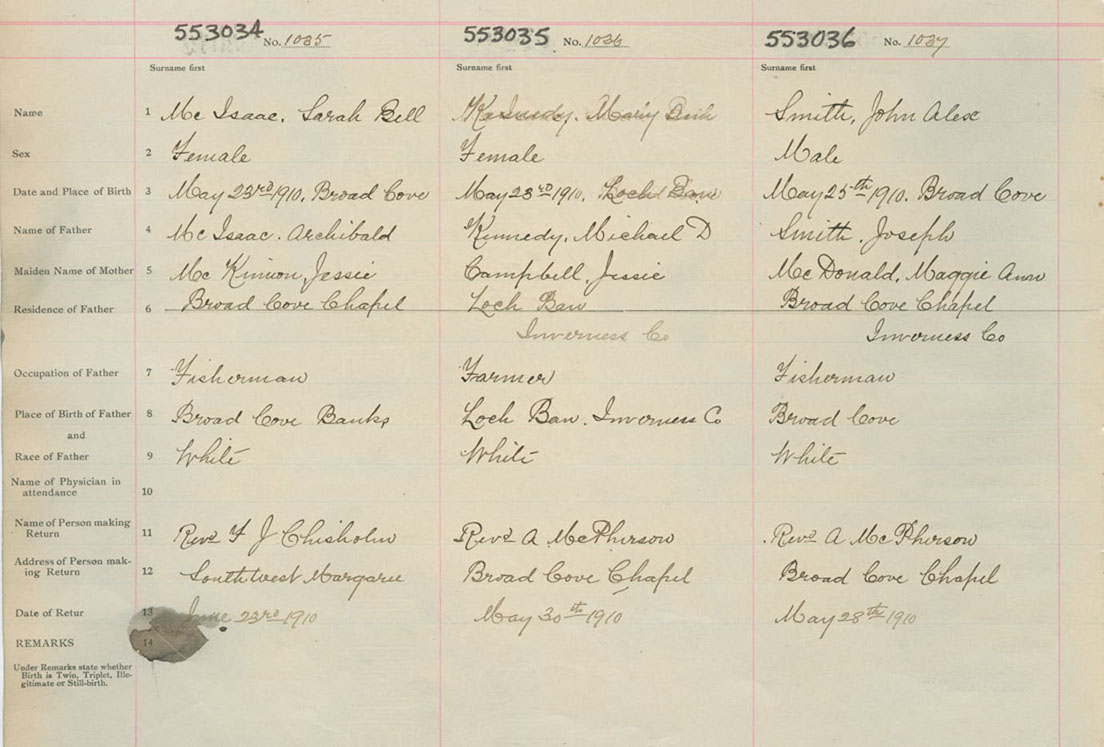 553034 No. 1035 553035 No. 1036 553036 No. 1037
Surname first Surname first Surname first
Name 1 Mc Isaac, Sarah Bell Kennedy, Mary Smith, John Alex
Sex 2 Female Female Male
Date and Place of Birth 3 May 23rd 1910. Broad Cove May 23rd 1910. Loch Ban May 25th 1910. Broad Cove
Name of Father 4 Mc Isaac. Archibald Kennedy, Michael D Smith. Joseph
Maiden Name of Mother 5 Mc Kinnon, Jessie Campbell, Jessie Mc Donald, Maggie Ann
Residence of Father 6 Broad Cove Chapel Loch Ban Broad Cove Chapel
Inverness Co Inverness Co
Occupation of Father 7 Fisherman Farmer Fisherman
Place of Birth of Father 8 Broad Cove Banks Loch Ban. Inverness Co Broad Cove
and
Race of Father 9 White White White
Name of Physician in
attendance 10
Name of Person making
Return 11 Revd F J Chisholm Revd A McPherson Revd A McPherson
Address of Person mak-
ing Return 12 Southwest Margaree Broad Cove Chapel Broad Cove Chapel
Date of Retur 13 June 23rd 1910 May 30th 1910 May 28th 1910
REMARKS 14
Under Remarks state whether
Birth is Twin, Triplet, Ille-
gitimate or Still-birth.